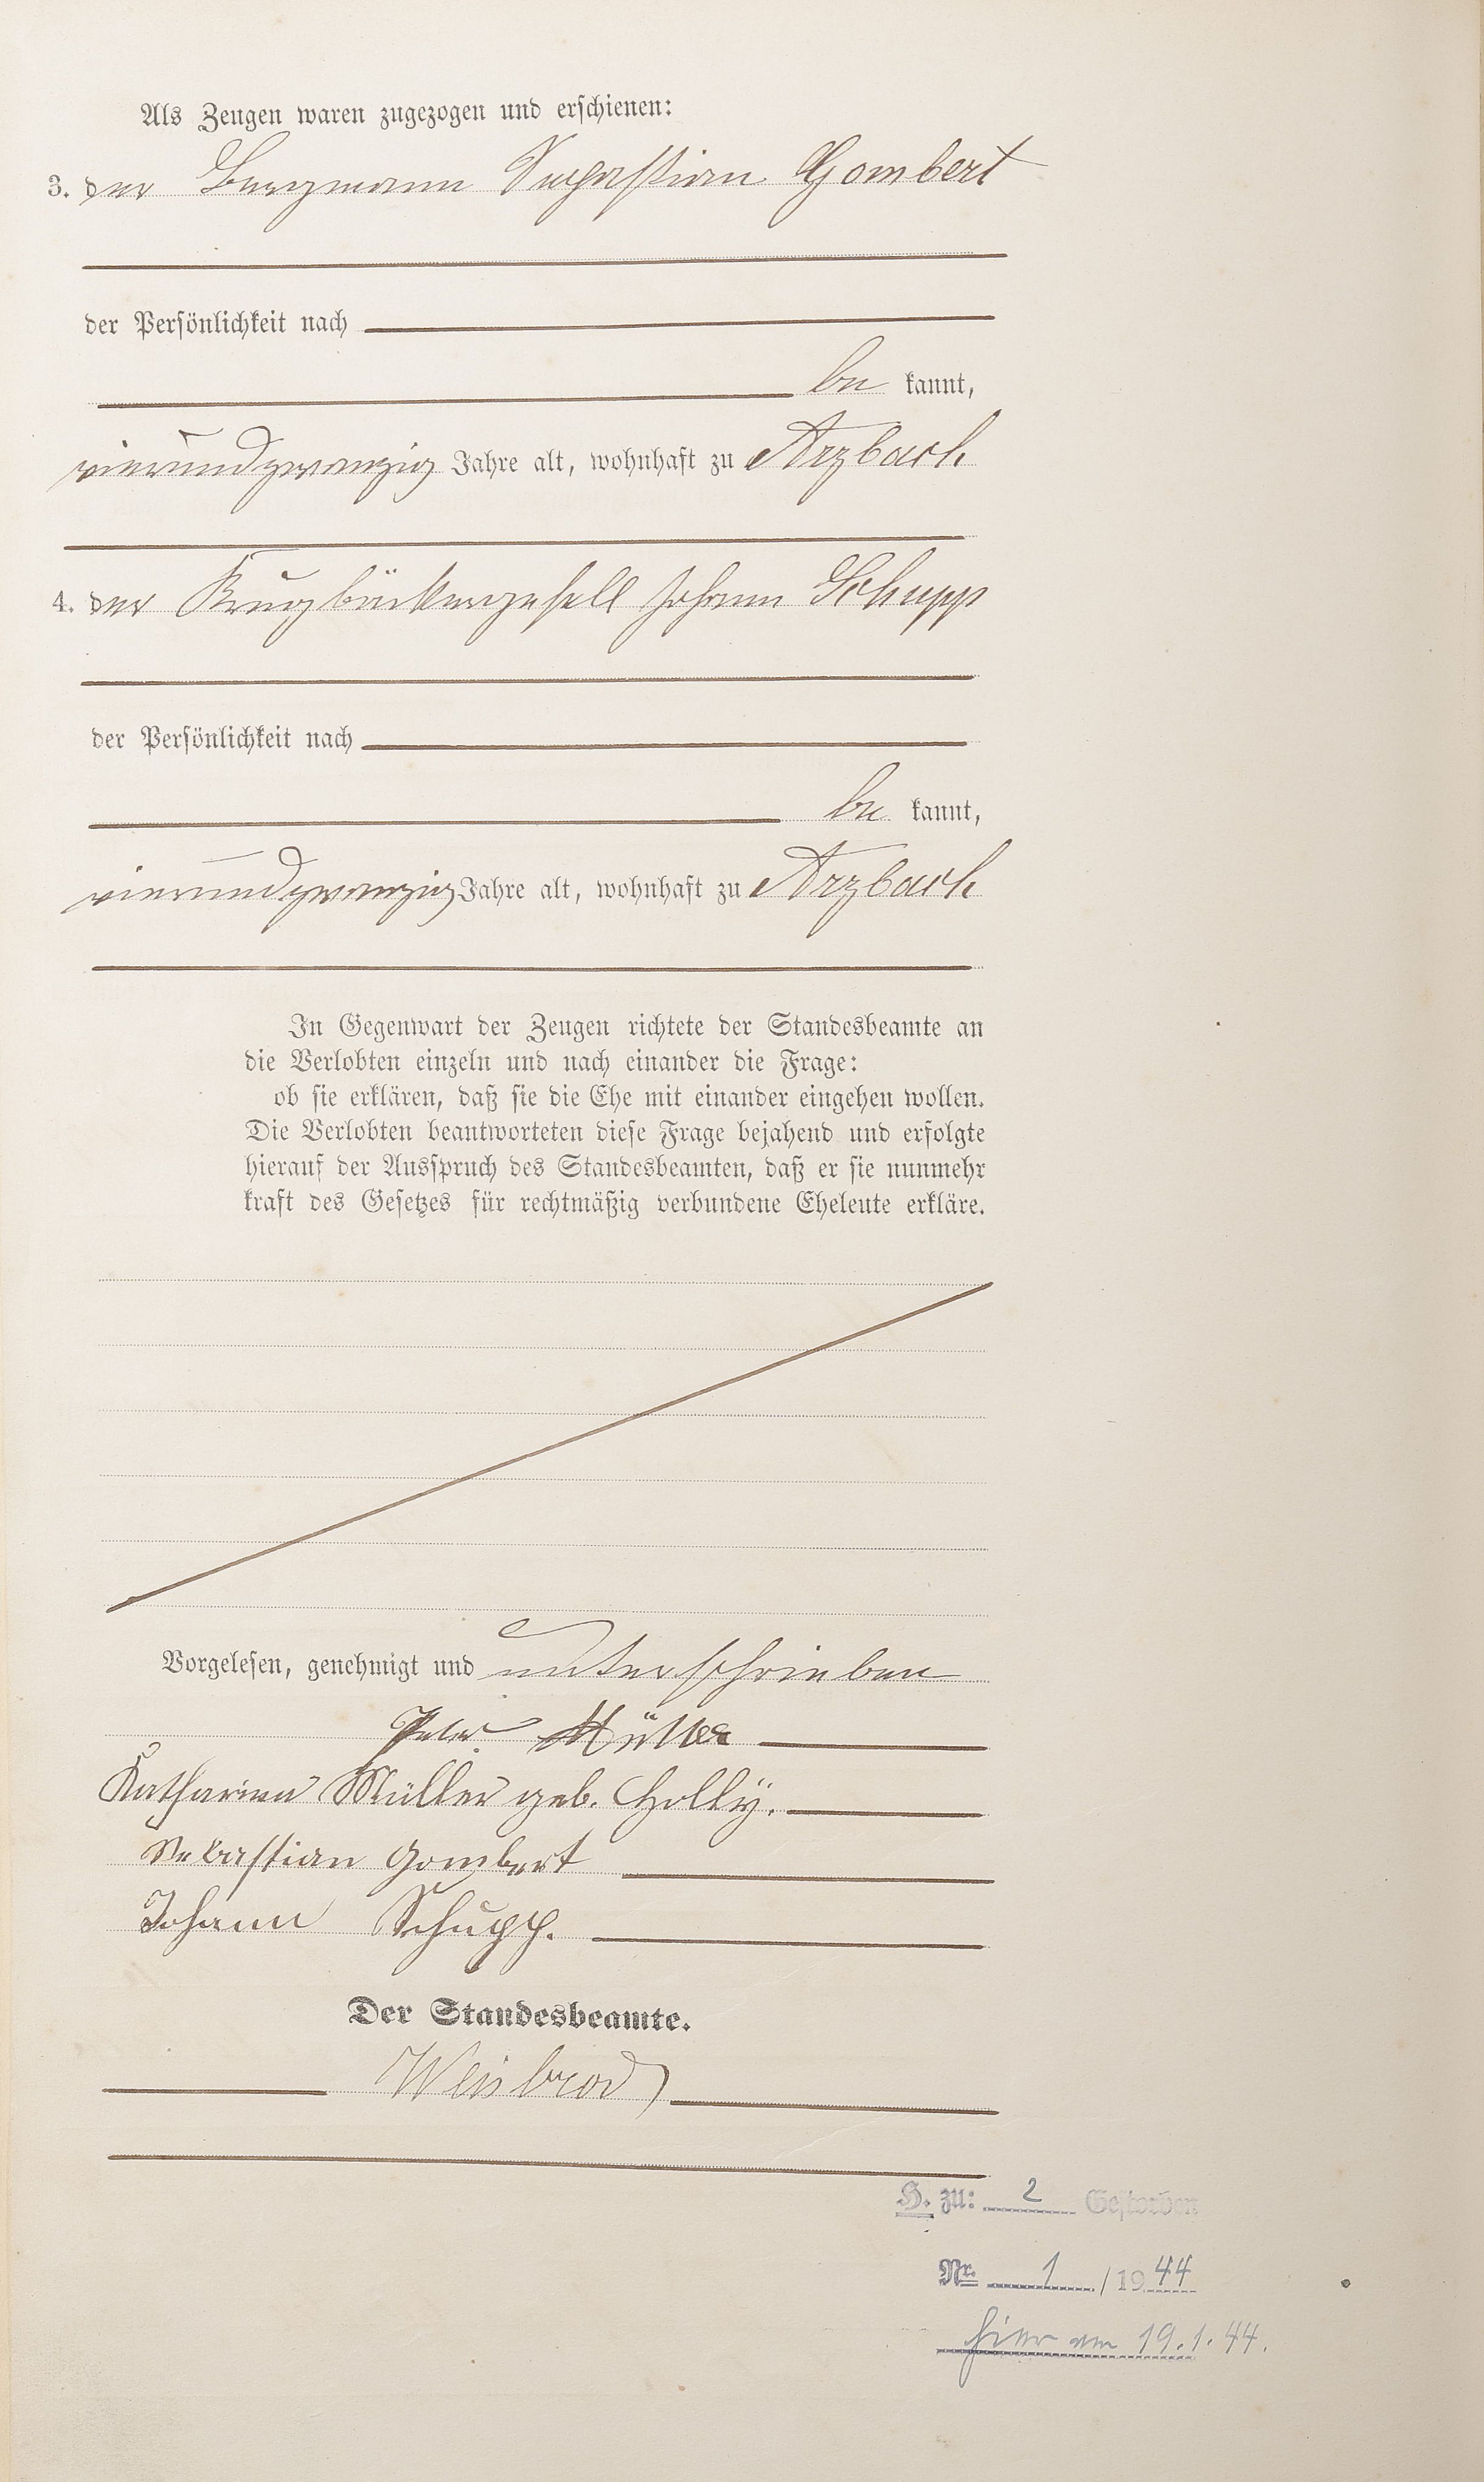 Als Zeugen waren zugezogen und erschienen:
3. der Bergmann Sebastian Gombert
der Persönlichkeit nach
be kannt,
vierundzwanzig Jahre alt, wohnhaft zu Arzbach
4. der Krugbäckergesell Johann Schupp
der Persönlichkeit nach
be kannt,
vierundzwanzig Jahre alt, wohnhaft zu Arzbach
In Gegenwart der Zeugen richtete der Standesbeamte an
die Verlobten einzeln und nach einander die Frage:
ob sie erklären, daß sie die Ehe mit einander eingehen wollen.
Die Verlobten beantworteten diese Frage bejahend und erfolgte
hierauf der Ausspruch des Standesbeamten, daß er sie nunmehr
kraft des Gesetzes für rechtmäßig verbundene Eheleute erkläre.
Vorgelesen, genehmigt und unterschrieben
Peter Müller
Katharina Müller geb. Holly.
Sebastian Gombert
Johann Schupp.
Der Standesbeamte.
Weisbrod
H. zu: 2 Gestorben
Nr. 1 / 1944
hier am 19.1.44.